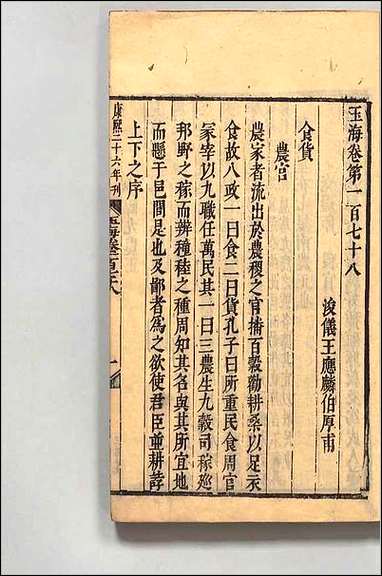 玉海卷第一百七十八
浚儀王應麟伯厚甫
食貨
農官
農家者流出於農稷之官播百穀勸耕桑以足衣
食故八政一曰食二曰貨孔子曰所重民食周官
冢宰以九職任萬民其一曰三農生九穀司稼廵
邦野之稼而辨穜稑之種周知其名與其所宜地
而懸于邑閭是也及鄙者為之欲使君臣並耕誖
上下之序
康熙二十六年刊
玉海卷百七十八
一